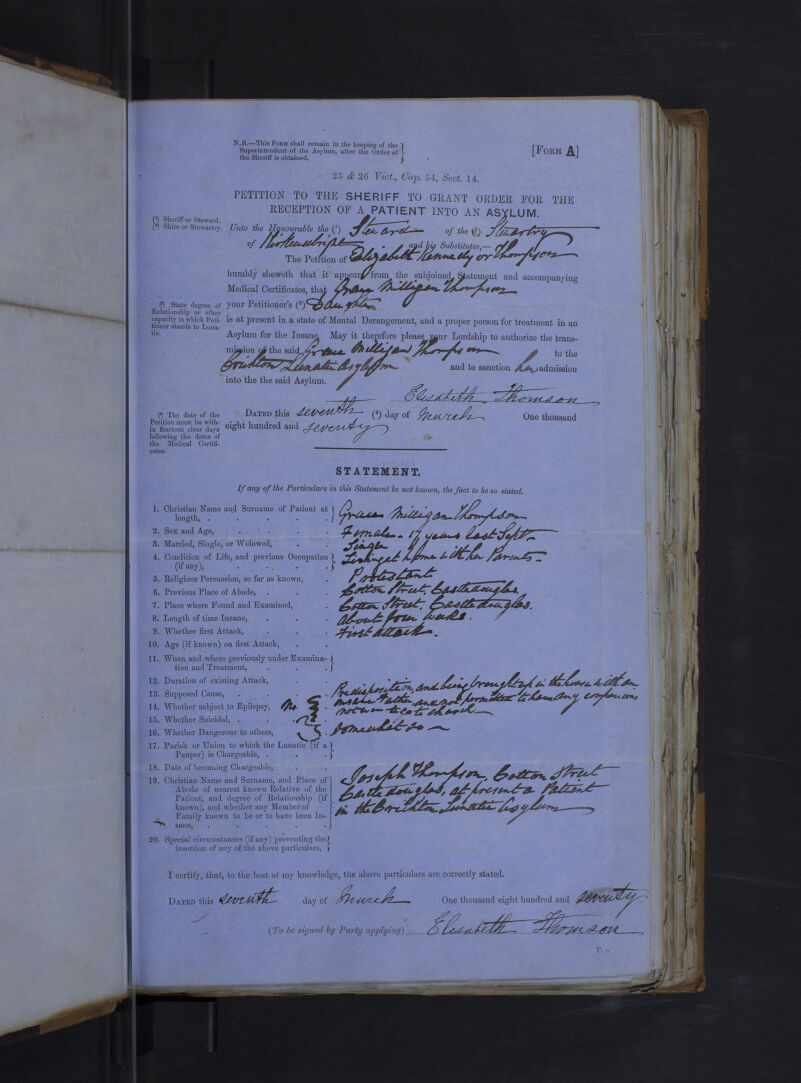 N.B.—This Form shall remain in the keeping of the
Superintendent of the Asylum, after the Order of
the Sheriff is obtained.
[Form A]
25 & 26 Vict., Cap. 54, Sect. 14.
PETITION TO THE SHERIFF TO GRANT ORDER FOR THE
RECEPTION OF A PATIENT INTO AN ASYLUM.
(1) Sheriff or Steward.
(2) Shire or Stewartry.
Unto the Honourable the (1) Steward of the (2) Stuartry
of Kirkcudbright and his Substitutes,—
The Petition of Elizabeth Kennedy or Thompson
humbly sheweth that it appears from the subjoined Statement and accompanying
Medical Certificates, that Grace Milligan Thompson
(3) State degree of
Relationship or other
capacity in which Peti-
tioner stands to Luna-
tic.
your Petitioner's (3) Daughter
is at present in a state of Mental Derangement, and a proper person for treatment in an
Asylum for the Insane. May it therefore please your Lordship to authorize the trans-
mission of the said Grace Milligan Thompson to the
Crichton Lunatic Asylum and to sanction her admission
into the the said Asylum.
Elisabeth Thomson
(4) The date of the
Petition must be with-
in fourteen clear days
following the dates of
the Medical Certifi-
cates.
Dated this seventh (4) day of March One thousand
eight hundred and seventy
STATEMENT.
If any of the Particulars in this Statement be not known, the fact to be so stated.
1. Christian Name and Surname of Patient at
length, . Grace Milligan Thompson
2. Sex and Age, Female - years last Sept-
3. Married, Single, or Widowed, Single
4. Condition of Life, and previous Occupation
(if any), Living at home with her Parents-
5. Religious Persuasion, so far as known, Protestant
6. Previous Place of Abode, Cotton Street, Castledouglas
7. Place where Found and Examined, Cotton Street, Castledouglas.
8. Length of time Insane, About four weeks.
9. Whether first Attack, First attack.
10. Age (if known) on first Attack,
11. When and where previously under Examina-
tion and Treatment,
12. Duration of existing Attack,
13. Supposed Cause, Predisposition, and being brought up in the house with an
insane Father and not permitted to have any companions
14. Whether subject to Epilepsy, No
not even to go to church
15. Whether Suicidal,
16. Whether Dangerous to others, Somewhat so
17. Parish or Union to which the Lunatic (if a
Pauper) is Chargeable,
18. Date of becoming Chargeable,
19. Christian Name and Surname, and Place of
Abode of nearest known Relative of the
Patient, and degree of Relationship (if
known), and whether any Member of
Family known to be or to have been In-
sane,
Joseph Thompson, Cotton Street
Castledouglas, at present a Patient
in the Crichton Lunatic Asylum
20. Special circumstances (if any) preventing the
insertion of any of the above particulars,
I certify, that, to the best of my knowledge, the above particulars are correctly stated.
Dated this seventh day of March One thousand eight hundred and seventy
(To be signed by Party applying) Elisabeth Thomson